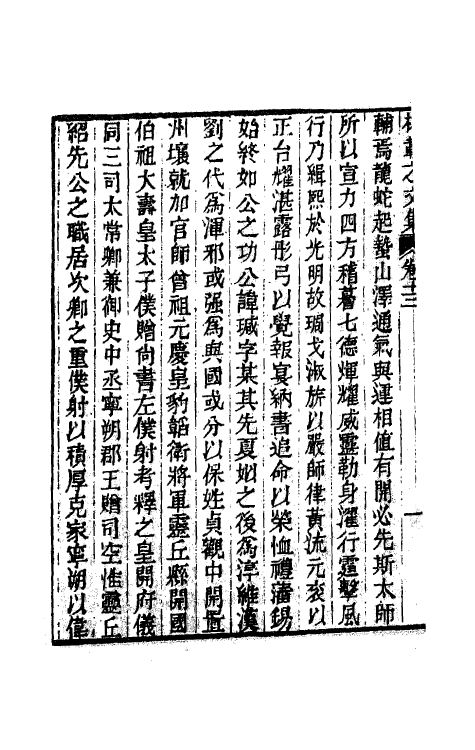 權載之文集 卷十三 一
輔焉龍蛇起蟄山澤通氣與運相值有開必先斯太師
所以宣力四方稽蓍七德煇耀威靈勒身濯行霆擊風
行乃緝熙於光明故琱戈淑旂以嚴師律黃流元袞以
正台耀湛露彤弓以覺報宴納書追命以榮恤禮藩錫
始終如公之功公諱瑊字某其先夏姒之後爲淳維漢
劉之代爲渾邪或强爲與國或分以保姓貞觀中開置
州壤就加官師曾祖元慶皇豹韜衛將軍靈丘縣開國
伯祖大壽皇太子僕贈尚書左僕射考釋之皇開府儀
同三司太常卿兼御史中丞寧朔郡王贈司空惟靈丘
紹先公之職居次卿之重僕射以積厚克家寧朔以偉